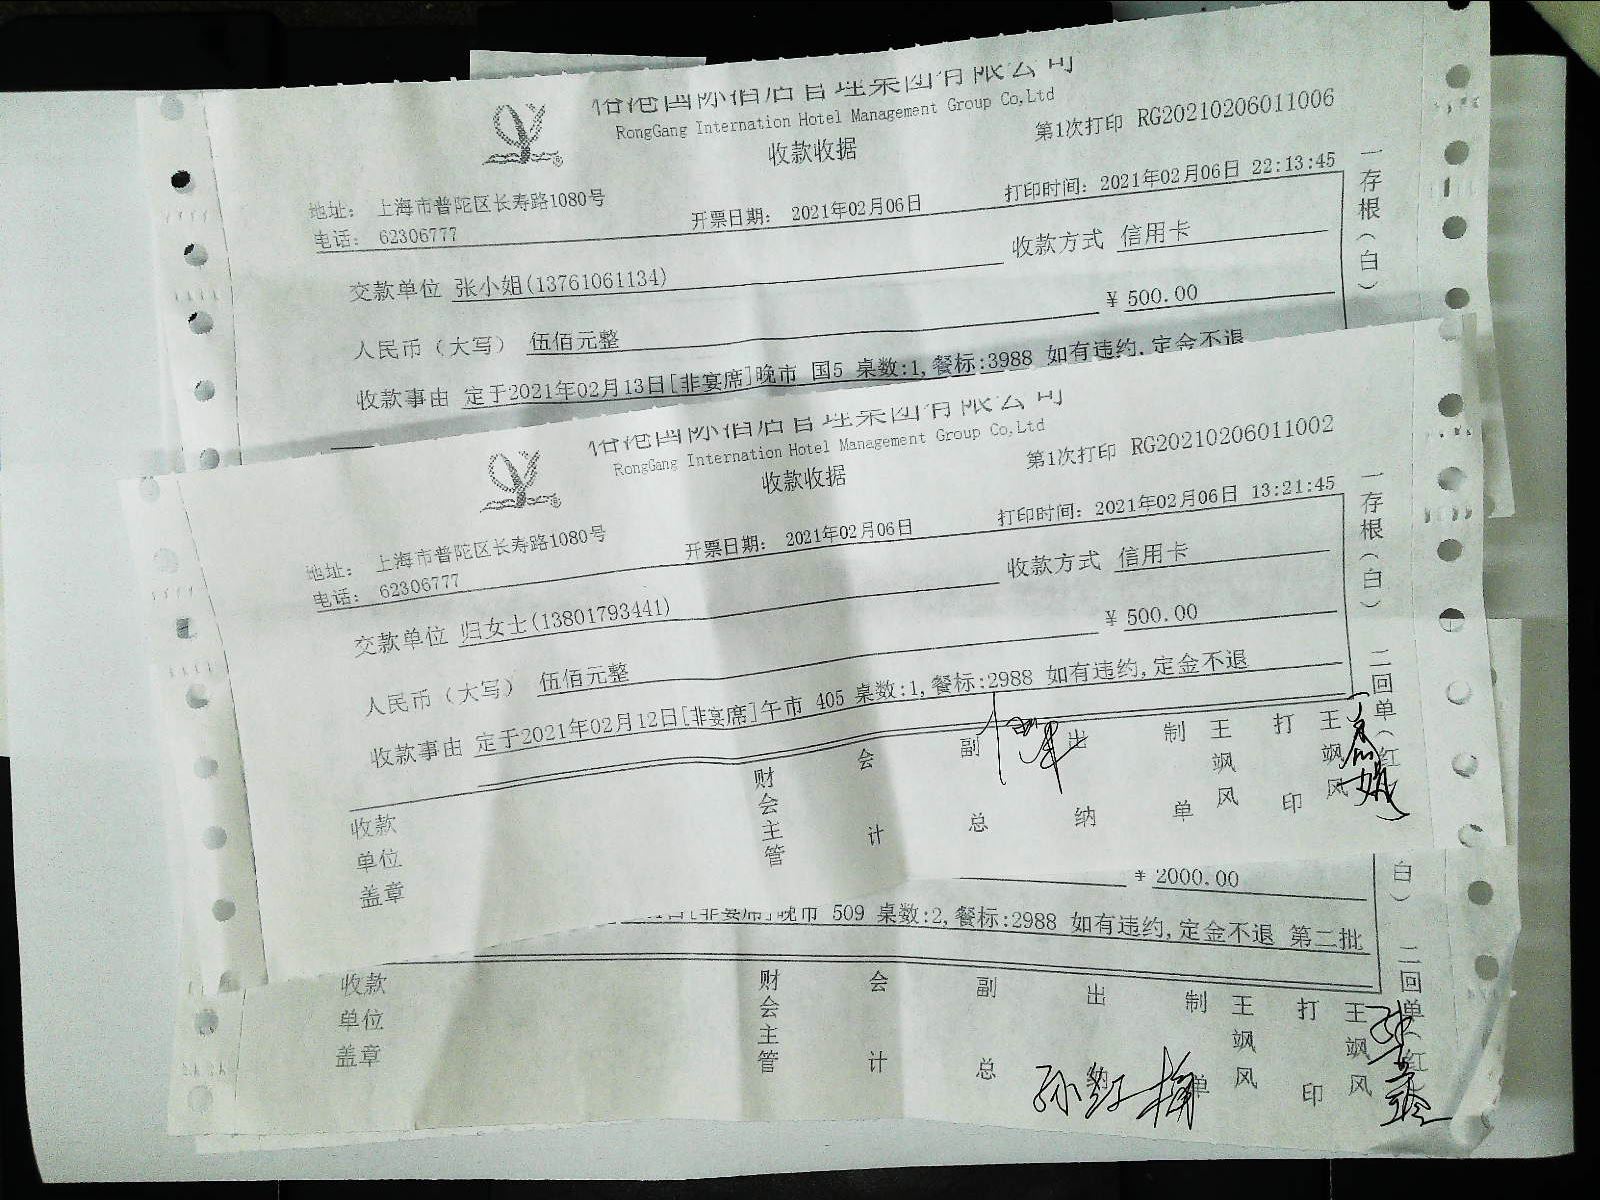 国际酒店管理集团有限公司
RongGang Internation Hotel Management Group Co,Ltd
收款收据
第1次打印 RG20210206011006
地址： 上海市普陀区长寿路1080号
电话： 62306777
开票日期： 2021年02月06日
打印时间：2021年02月06日 22:13:45
交款单位 张小姐(13761061134)
收款方式 信用卡
人民币（大写） 伍佰元整
￥ 500.00
收款事由 定于2021年02月13日[非宴席]晚市 国5 桌数:1,餐标:3988 如有违约,定金不退
一存根（白）
国际酒店管理集团有限公司
RongGang Internation Hotel Management Group Co,Ltd
收款收据
第1次打印 RG20210206011002
地址： 上海市普陀区长寿路1080号
电话： 62306777
开票日期： 2021年02月06日
打印时间：2021年02月06日 13:21:45
交款单位 归女士(13801793441)
收款方式 信用卡
人民币（大写） 伍佰元整
￥ 500.00
收款事由 定于2021年02月12日[非宴席]午市 405 桌数:1,餐标:2988 如有违约,定金不退
一存根（白）
二回单（红
收款单位盖章
财会主管
会计
副总
出纳
制单
王飒风
打印
王飒风
￥ 2000.00
[非宴席]晚市 509 桌数:2,餐标:2988 如有违约,定金不退 第二批
白）
二回单（红
收款单位盖章
财会主管
会计
副总
出纳
制单
王飒风
打印
王飒风
孙红梅